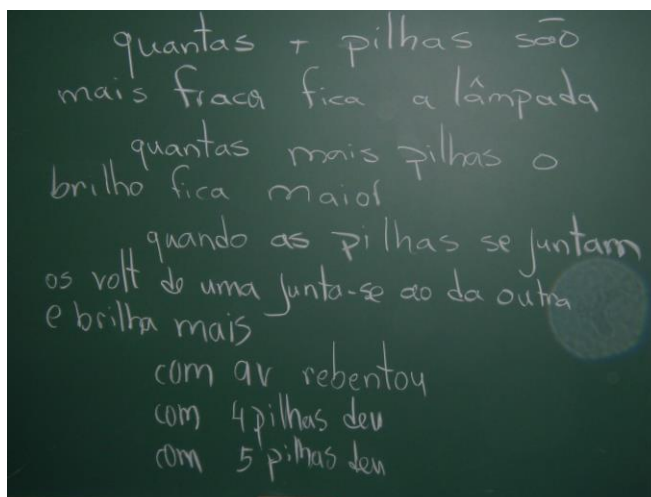 quantas + pilhas são
mais fraca fica a lâmpada
quantas mais pilhas o
brilho fica maior
quando as pilhas se juntam
os volt de uma junta-se ao da outra
e brilha mais
com 9v rebentou
com 4 pilhas deu
com 5 pilhas deu